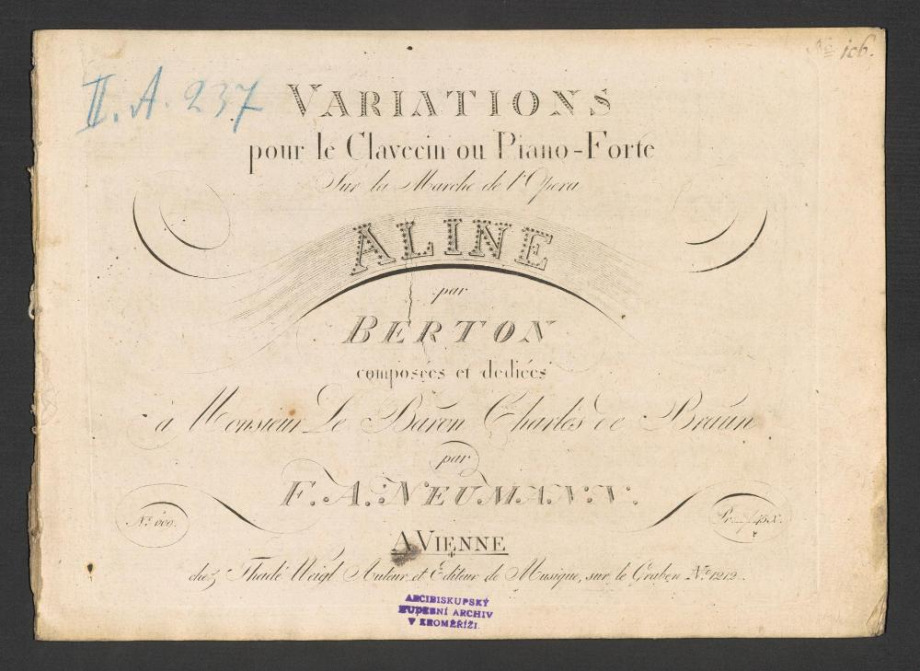 No 106.
II. A. 237
VARIATIONS
pour le Clavecin ou Piano-Forte
Sur la Marche de l'Opera
ALINE
par
BERTON
composées et dediées
à Monsieur Le Baron Charles de Braun
par
F. A. NEUMANN.
A VIENNE
chez Thadé Weigl Auteur et Editeur de Musique, sur le Graben No 1212.
ARCIBISKUPSKÝ
HUDEBNÍ ARCHIV
V KROMĚŘÍŽI